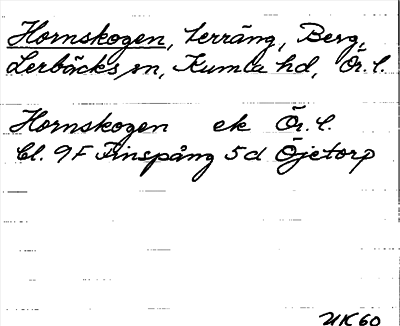 Hornskogen, terräng, Berg,
Lerbäcks sn, Kumla hd, Ör. l.
Hornskogen ek Ör. l.
bl. 9F Finspång 5d Öjetorp
UK 60